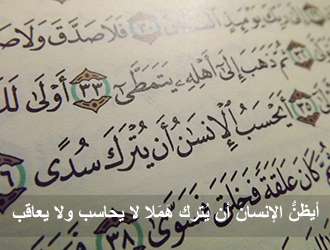 فَلَا صَدَّقَ وَلَا
ثُمَّ ذَهَبَ إِلَىٰ أَهْلِهِ يَتَمَطَّىٰ ٣٣ أَوْلَىٰ لَكَ
أَيَحْسَبُ الْإِنسَانُ أَن يُتْرَكَ سُدًى
كَانَ عَلَقَةً فَخَلَقَ فَسَوَّىٰ ٣٨
أيظنُّ الإنسان أن يُترك هَمَلا لا يحاسب ولا يعاقب